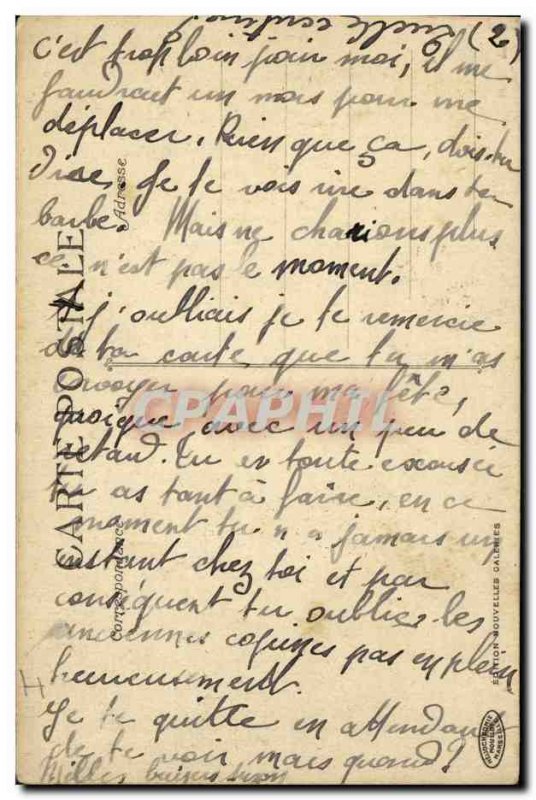 (2)
c'est trop loin pour moi, il me
faudrait un mois pour me
déplacer. Rien que ça, dois-tu
dire, je te vois rire dans ta
barbe. Mais ne charions plus
ce n'est pas le moment.
j'oubliais je te remercie
de ta carte que tu m'as
envoyer pour ma fête,
quoique avec un peu de
retard. Tu es toute excusée
tu as tant à faire, en ce
moment tu n'a jamais un
instant chez toi et par
conséquent tu oublies les
anciennes copines pas en plein
heureusement.
Je te quitte en attendant
de te voir, mais quand?
Milles baisers
CARTE POSTALE
Correspondance
Adresse
EDITION NOUVELLES GALERIES
CPAPHIL